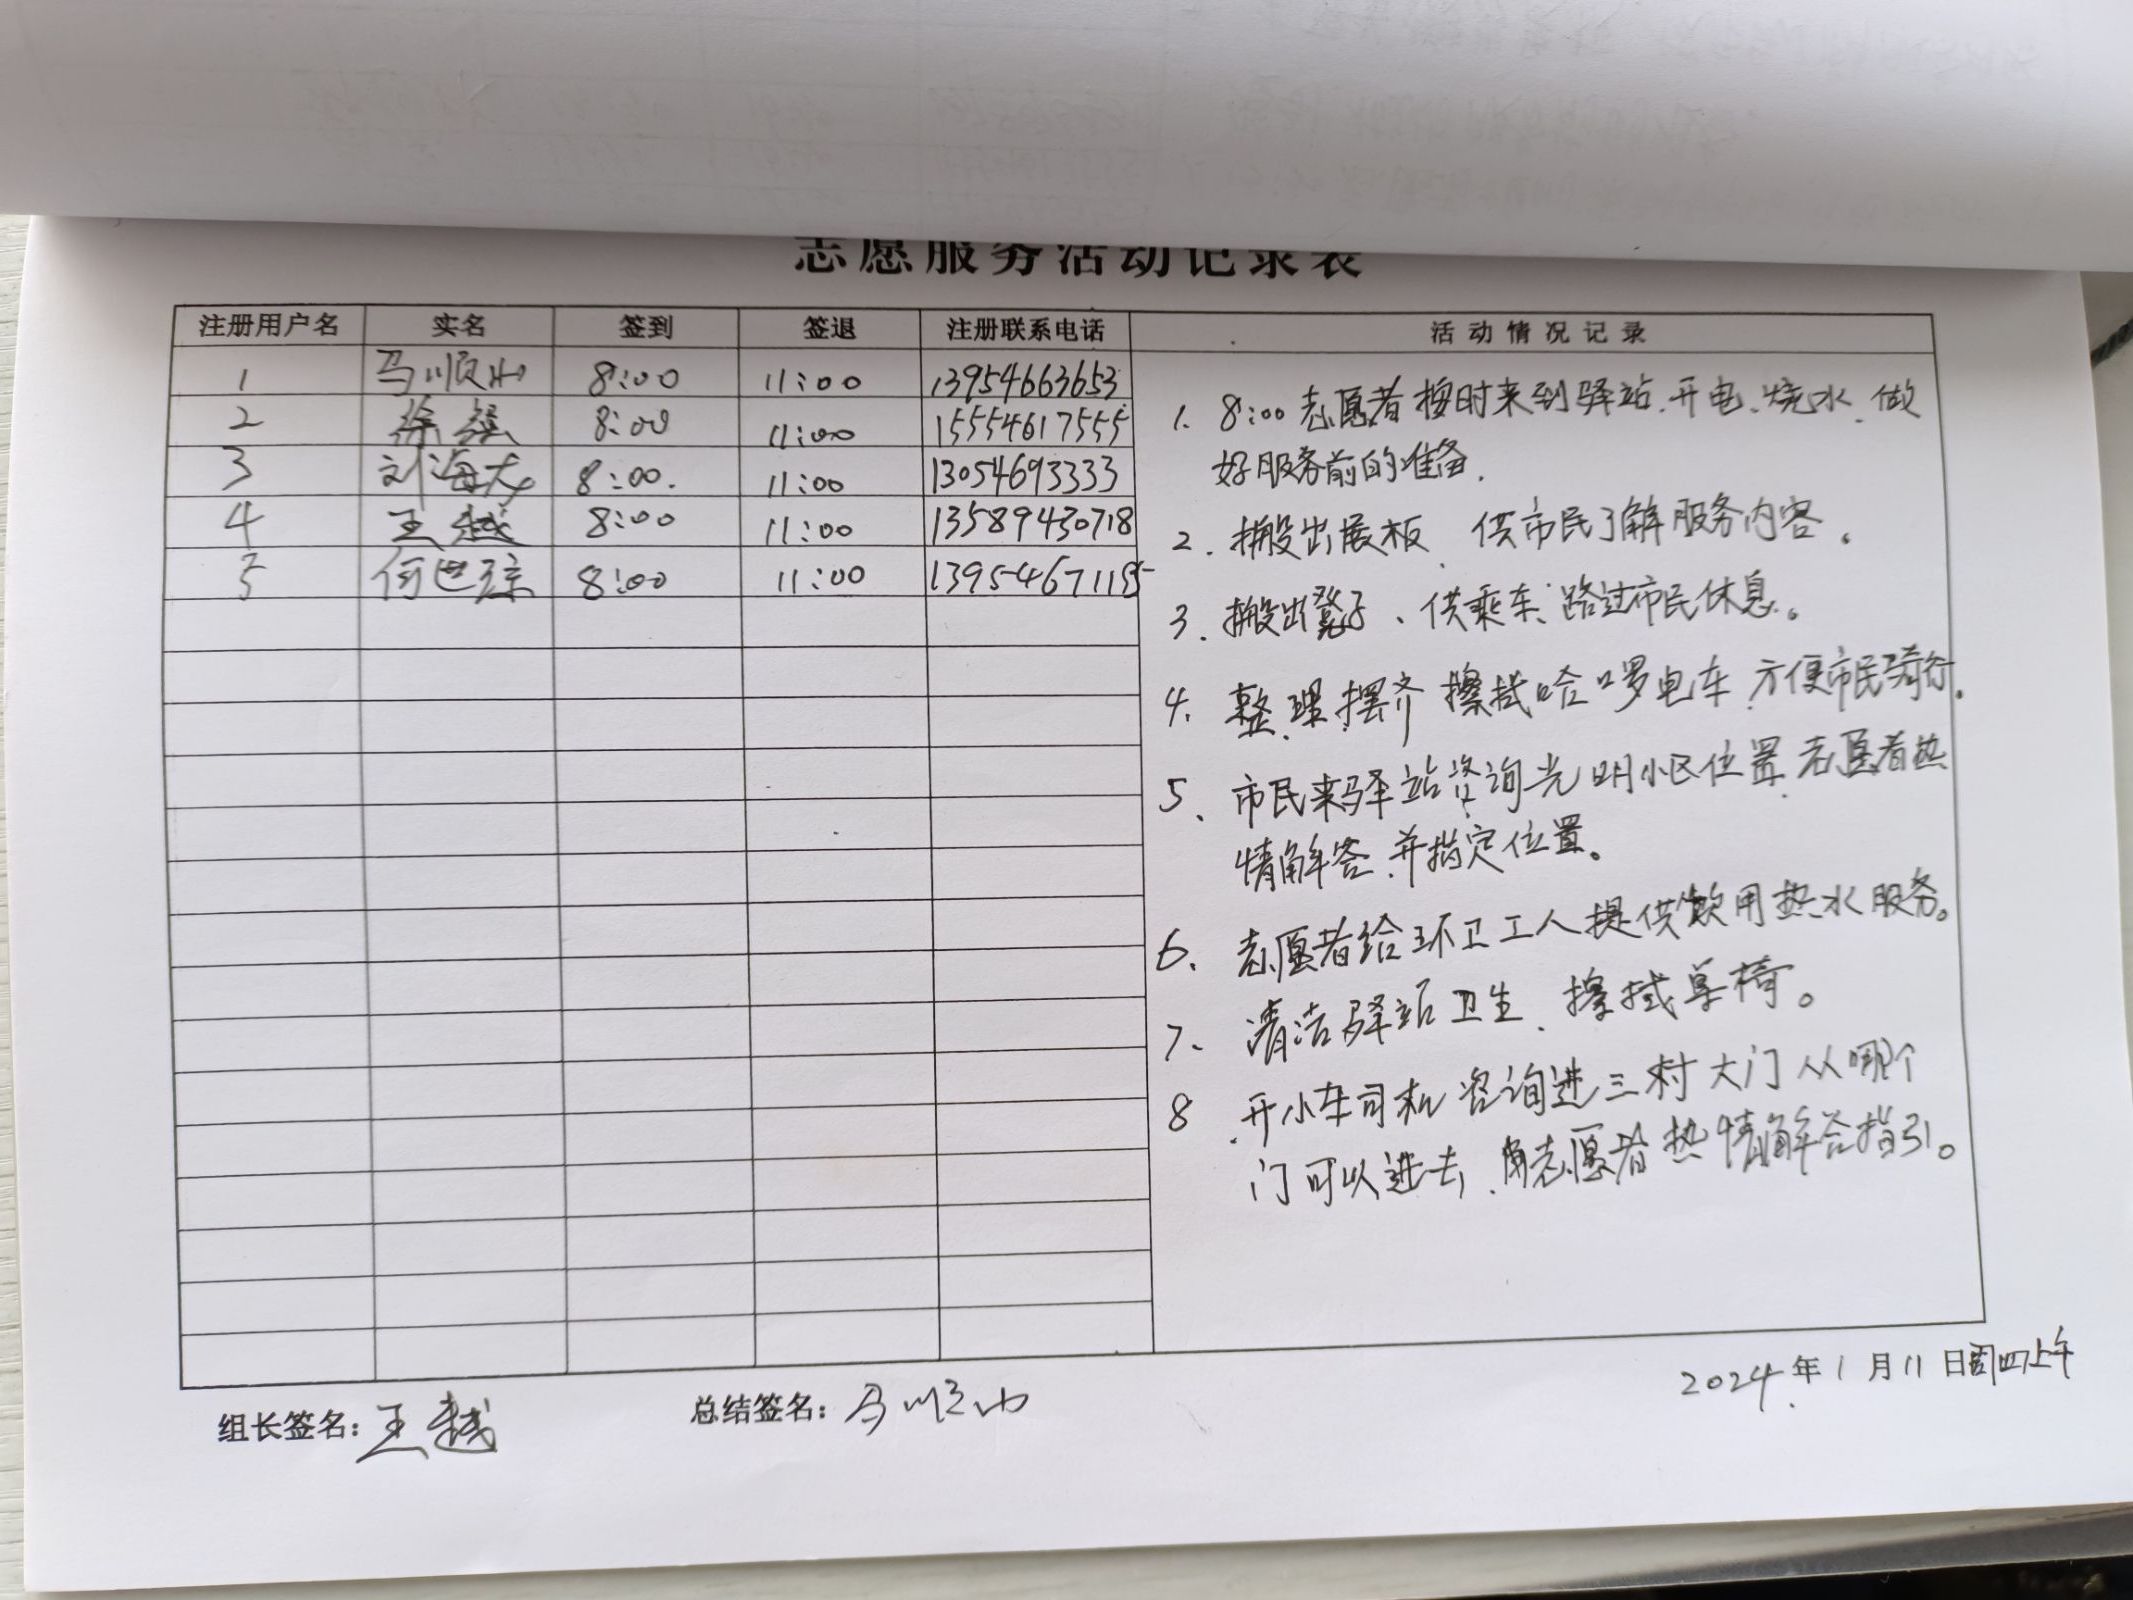 志愿服务活动记录表
注册用户名 实名 签到 签退 注册联系电话 活动情况记录
1 马顺山 8:00 11:00 13954663653
2 徐强 8:00 11:00 15554617555
3 刘海龙 8:00. 11:00 13054693333
4 王越 8:00 11:00 13589430718
5 何世琼 8:00 11:00
1. 8:00志愿者按时来到驿站.开电、烧水、做
好服务前的准备.
2. 搬出展板 供市民了解服务内容。
3. 搬出凳子、供乘车、路过市民休息。
4. 整理.摆齐 擦拭哈啰电车.方便市民骑行.
5、市民来驿站咨询光明小区位置.志愿者热
情解答.并指定位置。
6、志愿者给环卫工人提供饮用热水服务。
7、清洁驿站卫生、擦拭桌椅。
8.开小车司机咨询进三村大门从哪个
门可以进去.志愿者热情解答指引。
2024.年1月11日周四上午
组长签名:王越 总结签名:马顺山